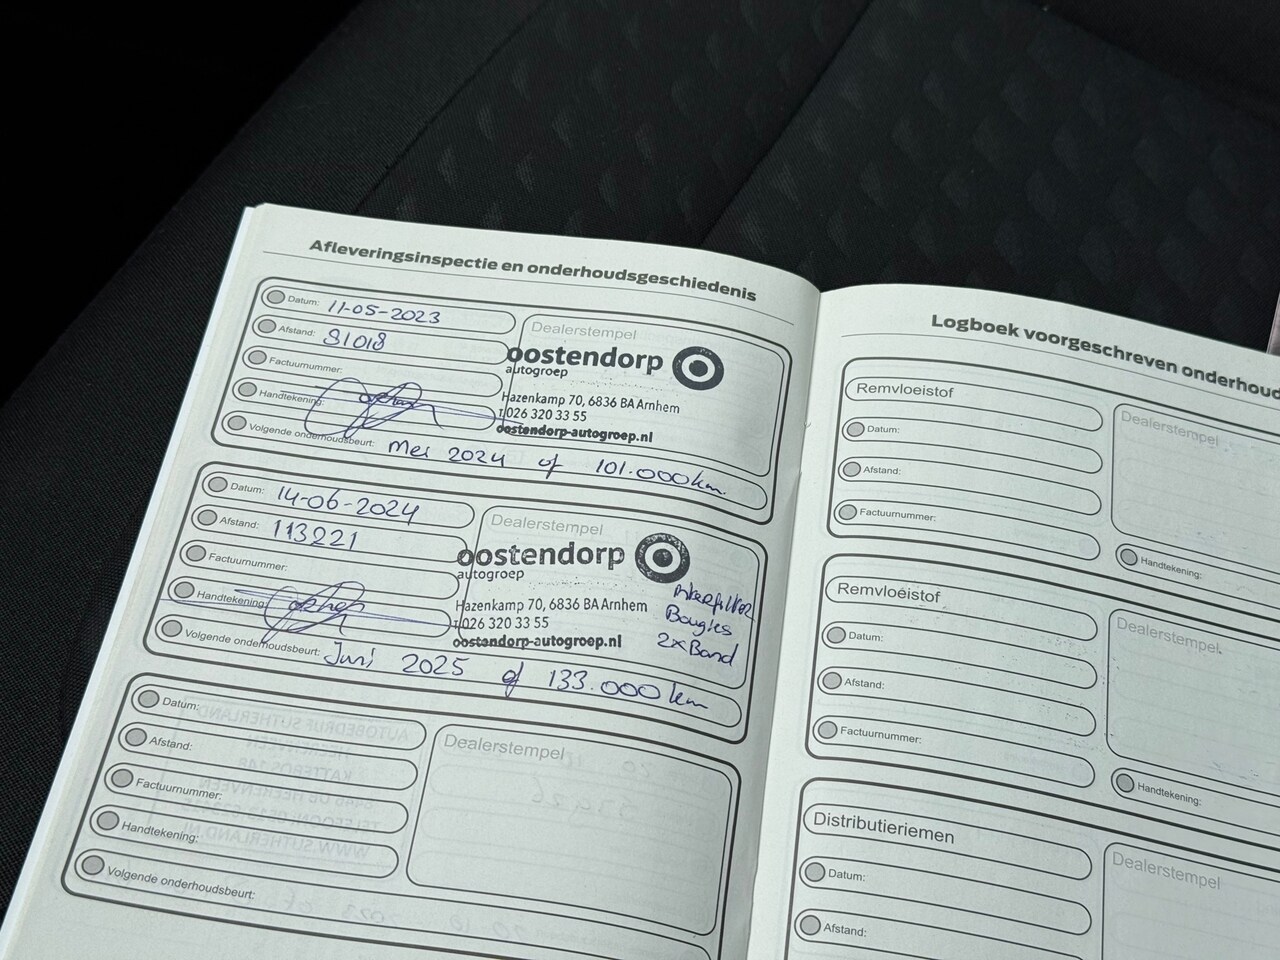 Afleveringsinspectie en onderhoudsgeschiedenis
Datum: 11-05-2023
Afstand: 81018
Factuurnummer:
Handtekening:
Volgende onderhoudsbeurt: Mei 2024 of 101.000 km
Dealerstempel
oostendorp
autogroep
Hazenkamp 70, 6836 BA Arnhem
T 026 320 33 55
oostendorp-autogroep.nl
Datum: 14-06-2024
Afstand: 113221
Factuurnummer:
Handtekening:
Volgende onderhoudsbeurt: Juni 2025 of 133.000 km
Dealerstempel
oostendorp
autogroep
Hazenkamp 70, 6836 BA Arnhem
T 026 320 33 55
oostendorp-autogroep.nl
Bougies
2x Band
Datum:
Afstand:
Factuurnummer:
Handtekening:
Volgende onderhoudsbeurt:
Dealerstempel
Logboek voorgeschreven onderhoud
Remvloeistof
Datum:
Afstand:
Factuurnummer:
Dealerstempel
Handtekening:
Remvloeistof
Datum:
Afstand:
Factuurnummer:
Dealerstempel
Handtekening:
Distributieriemen
Datum:
Afstand:
Dealerstempel